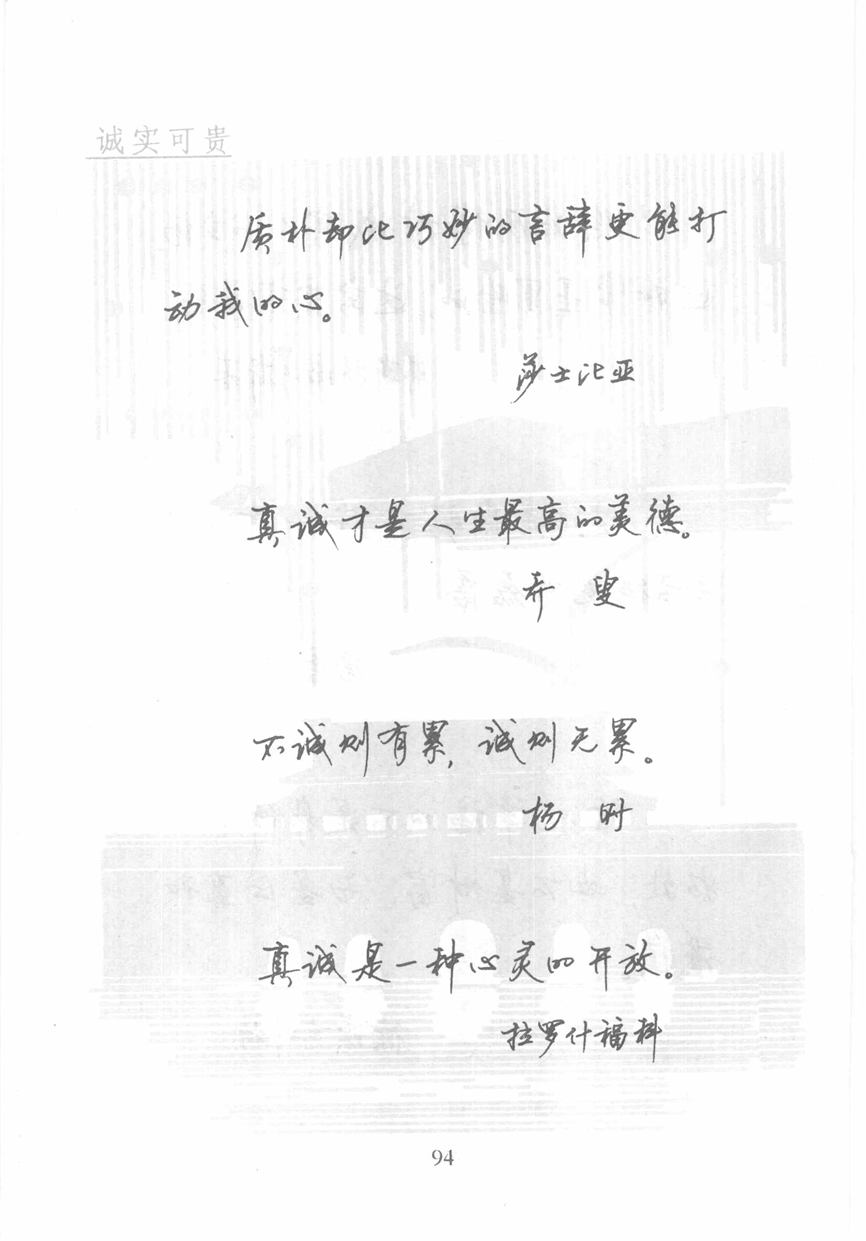 诚实可贵
质朴却比巧妙的言辞更能打
动我的心。
莎士比亚
真诚才是人生最高的美德。
乔 叟
不诚则有累，诚则无累。
杨 时
真诚是一种心灵的开放。
拉罗什福科
94